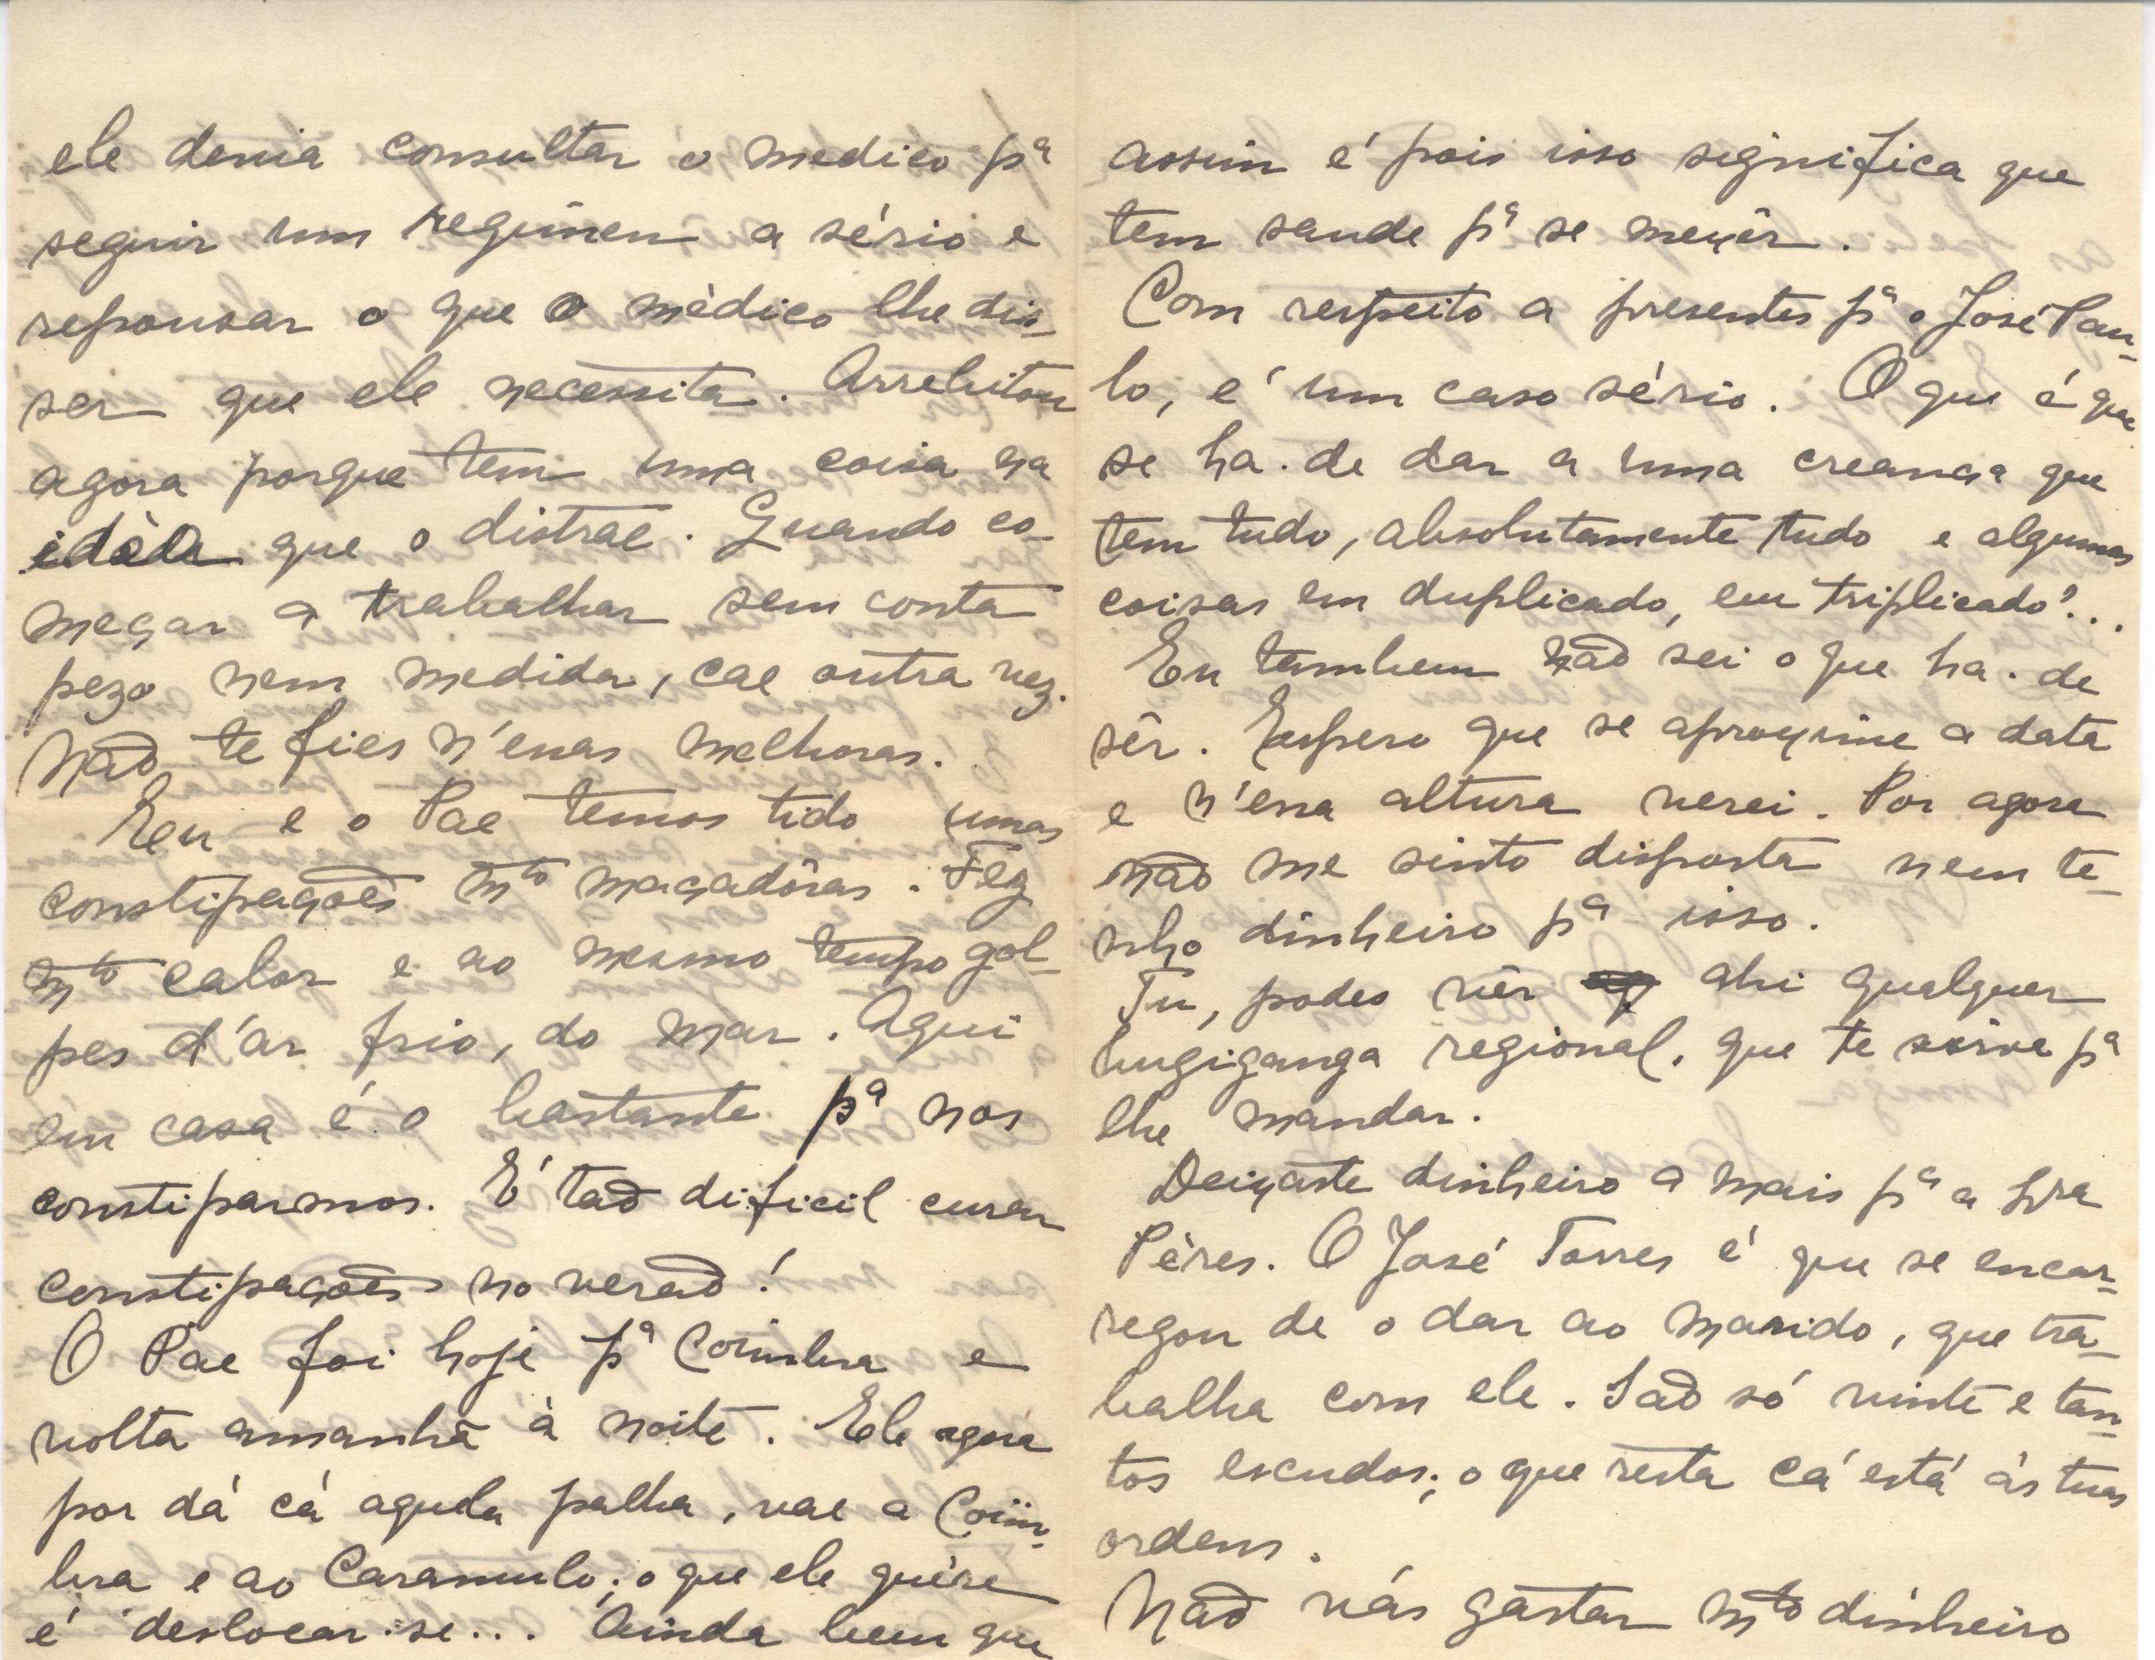 ele devia consultar o medico pª
seguir um regimen a sério e
repousar o que o mèdico lhe dis-
ser que ele necessita. Arrebitou
agora porque tem uma coisa na
idèia que o distrae. Quando co-
meçar a trabalhar sem conta
pezo nem medida, cae outra vez.
Não te fies n'essas melhoras.
Eu e o Pae temos tido umas
constipações mto maçadôras. Fez
mto calor e ao mesmo tempo gol-
pes d'ar frio, do mar. Aqui
em casa é o bastante pª nos
constiparmos. É tão dificil curar
constipações no verão!
O Pae foi hoje pª Coimbra e
volta amanhã à noite. Ele agora
por dá cá aquela palha, vae a Coim-
bra e ao Caramulo; o que ele quère
é deslocar-se... Ainda bem que
assim é pois isso significa que
tem saude pª se mexêr.
Com respeito a presentes pª o José Pau-
lo, é um caso sério. O que é que
se ha-de dar a uma creança que
tem tudo, absolutamente tudo e algumas
coisas em duplicado, em triplicado?...
Eu tambem não sei o que ha-de
sêr. Espero que se aproxime a data
e n'essa altura verei. Por agora
não me sinto disposta nem te-
nho dinheiro pª isso.
Tu, podes vêr ahi qualquer
bugiganga regional, que te sirva pª
lhe mandar.
Deixaste dinheiro a mais pª a Sra
Pères. O José Torres é que se encar-
regou de o dar ao marido, que tra-
balha com ele. São só vinte e tan-
tos escudos; o que resta cá está às tuas
ordens.
Não vás gastar mto dinheiro